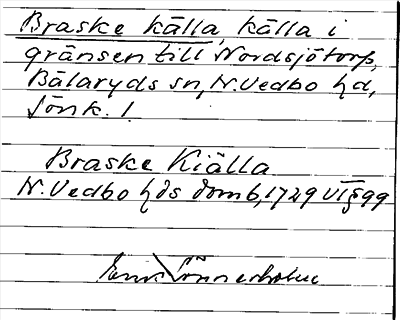 Braske källa, källa i
gränsen till Nordsjötorp,
Bälaryds sn, N. Vedbo hd,
Jönk. l
Braske Kiälla
N. Vedbo hds domb, 1729 VT § 99